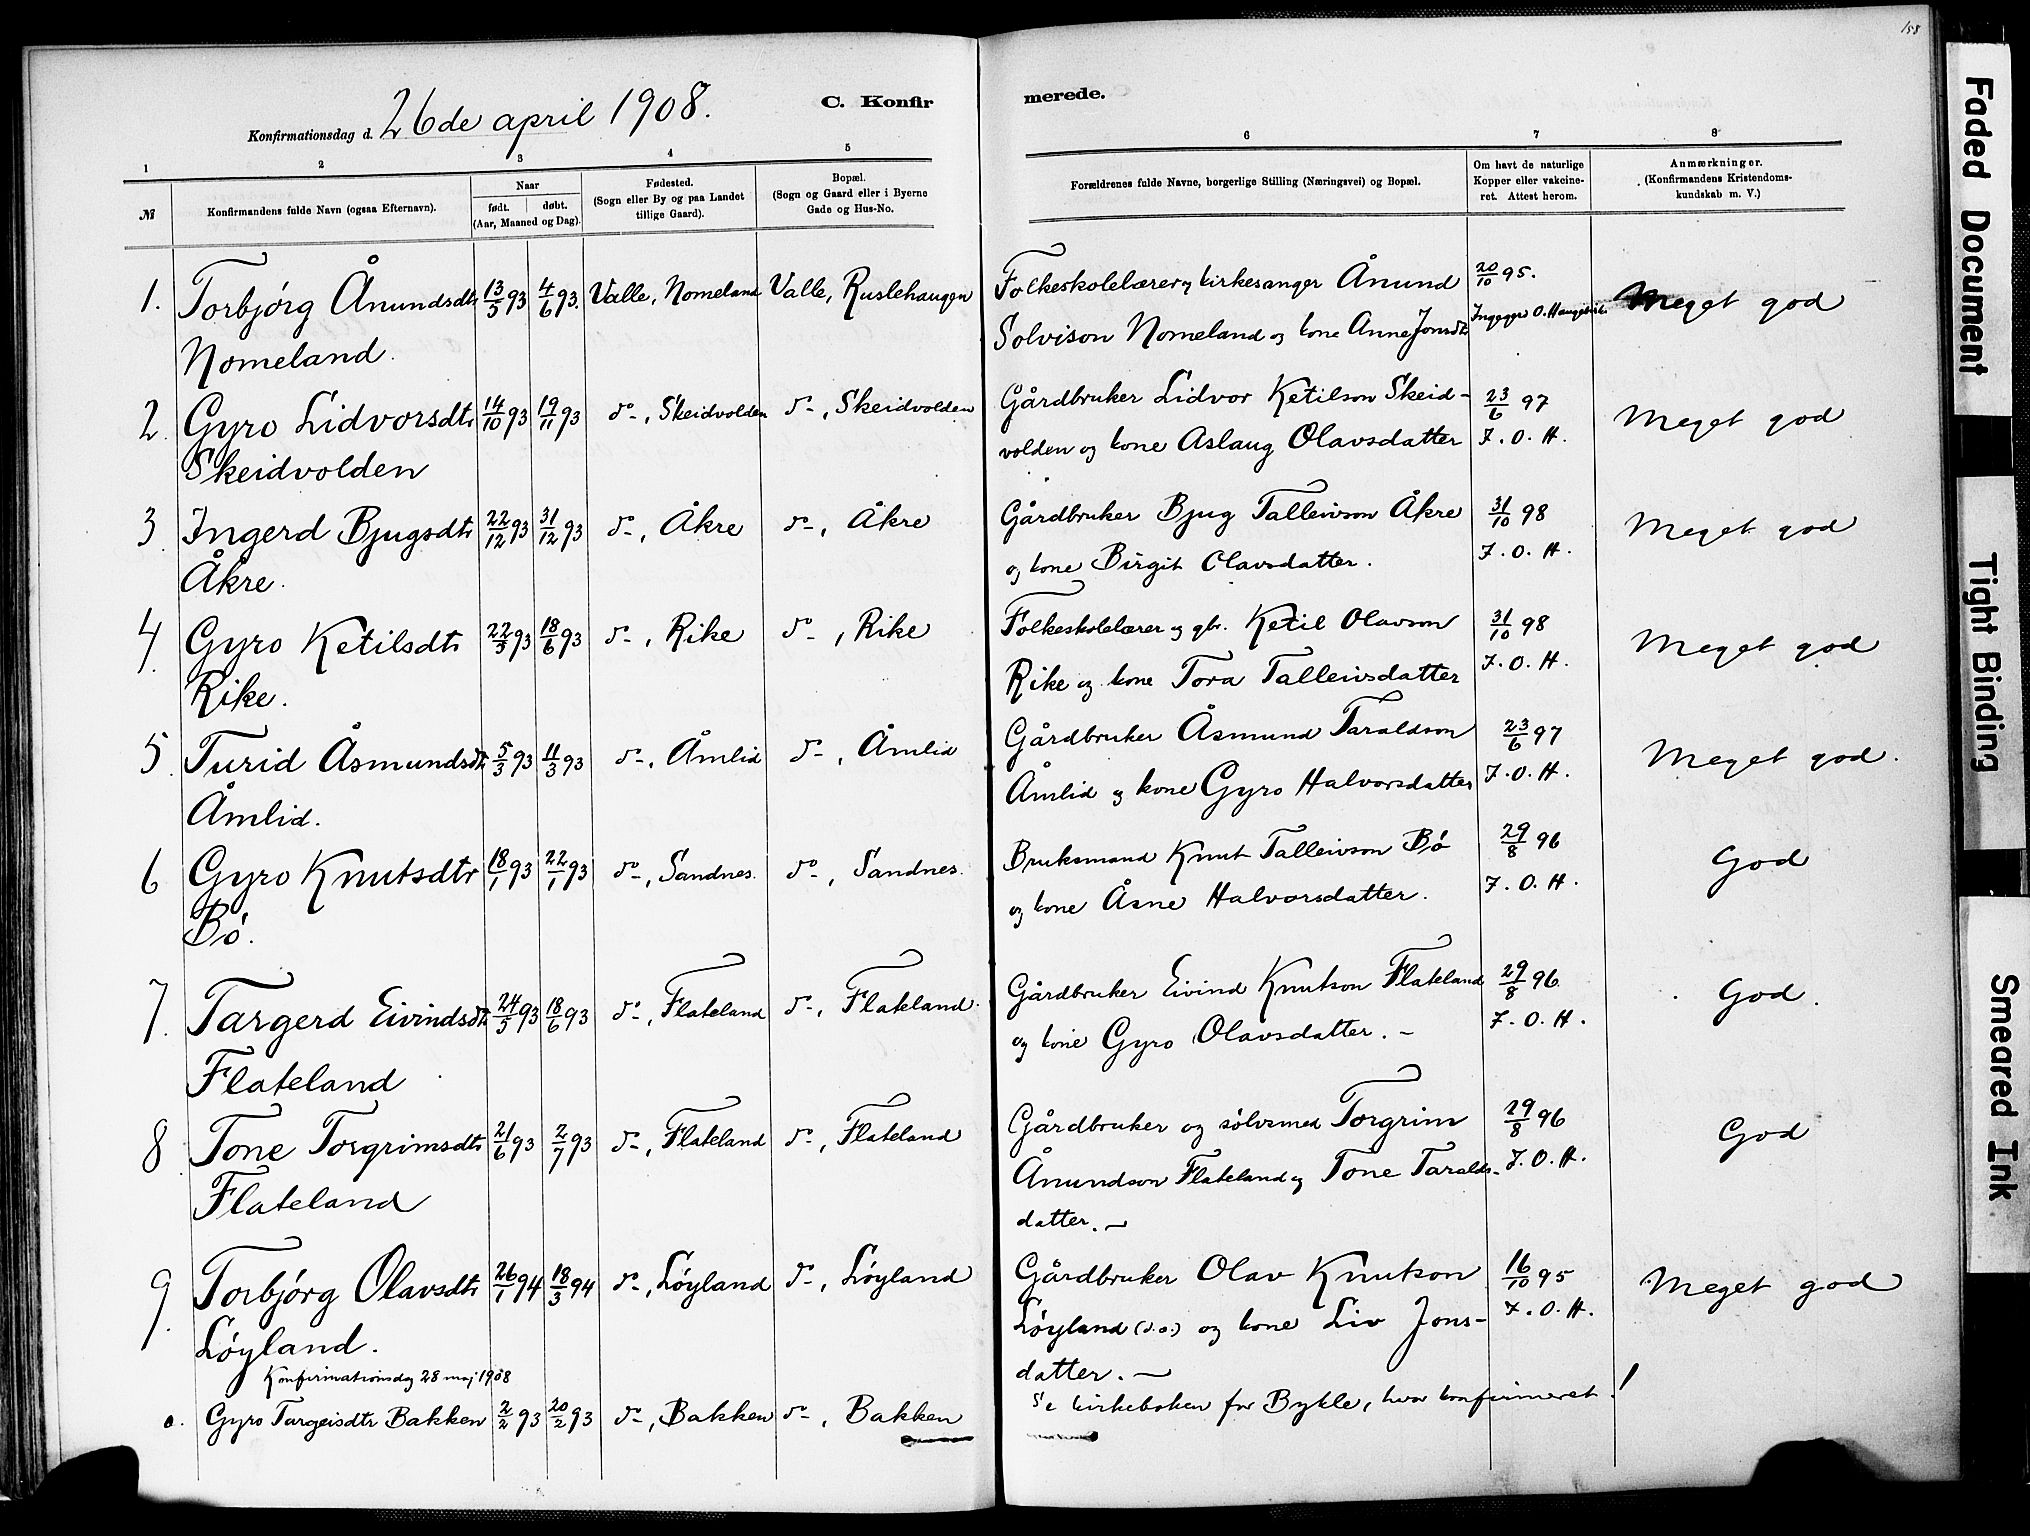 158
C. Konfir
merede.
Konfirmationsdag d. 26de april 1908.
1 2 3 4 5 6 7 8
№
Konfirmandens fulde Navn (ogsaa Efternavn).
Naar
født. døbt.
(Aar, Maaned og Dag).
Fødested.
(Sogn eller By og paa Landet
tillige Gaard).
Bopæl.
(Sogn og Gaard eller i Byerne
Gade og Hus-No.
Forældrenes fulde Navne, borgerlige Stilling (Næringsvei) og Bopæl.
Om havt de naturlige
Kopper eller vakcine-
ret. Attest herom.
Anmærkninger.
(Konfirmandens Kristendoms-
kundskab m. V.)
1. Torbjørg Ånundsdtr 13/5 93 4/6 93. Valle, Nomeland Valle, Ruslehaugen Folkeskolelærer og kirkesanger Ånund 20/10 95. Meget god
Nomeland. Solvison Nomeland og kone Anne Jonsdtr O.
2. Gyro Lidvorsdtr 14/10 93 19/11 93 do-, Skeidvolden do-, Skeidvolden Gårdbruker Lidvor Ketilson Skeid- 23/6 97 Meget god
Skeidvolden volden og kone Aslaug Olavsdatter I. O. H.
3. Ingerd Bjugsdtr 22/12 93 31/12 93 do-, Åkre do-, Åkre Gårdbruker Bjug Talleivson Åkre 31/10 98 Meget god
Åkre. og kone Birgit Olavsdatter. I. O. H.
4. Gyro Ketilsdtr 22/5 93 18/6 93 do-, Rike do-, Rike Folkeskolelærer og gbr. Ketil Olavson 31/10 98 Meget god
Rike. Rike og kone Tora Talleivsdatter I. O. H.
5. Turid Åsmundsdtr 5/3 93 11/3 93 do-, Åmlid do-, Åmlid Gårdbruker Åsmund Taraldson 23/6 97 Meget god.
Åmlid. Åmlid og kone Gyro Halvorsdatter I. O. H.
6 Gyro Knutsdtr 18/1 93 22/1 93 do-, Sandnes. do-, Sandnes. Bruksmand Knut Talleivson Bø 29/8 96 God
Bø. og kone Åsne Halvorsdatter. I. O. H.
7. Targerd Eivindsdtr 24/5 93 18/6 93 do-, Flateland do-, Flateland. Gårdbruker Eivind Knutson Flateland 29/8 96 God.
Flateland og kone Gyro Olavsdatter. - I. O. H.
8 Tone Torgrimsdtr 21/6 93 2/7 93 do-, Flateland do-, Flateland Gårdbruker og sølvsmed Torgrim 29/8 96 God
Flateland Ånundson Flateland og Tone Taralds- I. O. H.
datter. -
9. Torbjørg Olavsdtr 26/1 94 18/3 94 do-, Løyland do-, Løyland Gårdbruker Olav Knutson 16/10 95 Meget god
Løyland. Løyland og kone Liv Jons- I. O. H.
datter. -
Konfirmationsdag 28 maj 1908
o. Gyro Targeisdtr Bakken 2/2 93 20/2 93 do-, Bakken do-, Bakken Se kirkeboken for Bykle, hvor konfirmeret!
Faded Document
Tight Binding
Smeared Ink